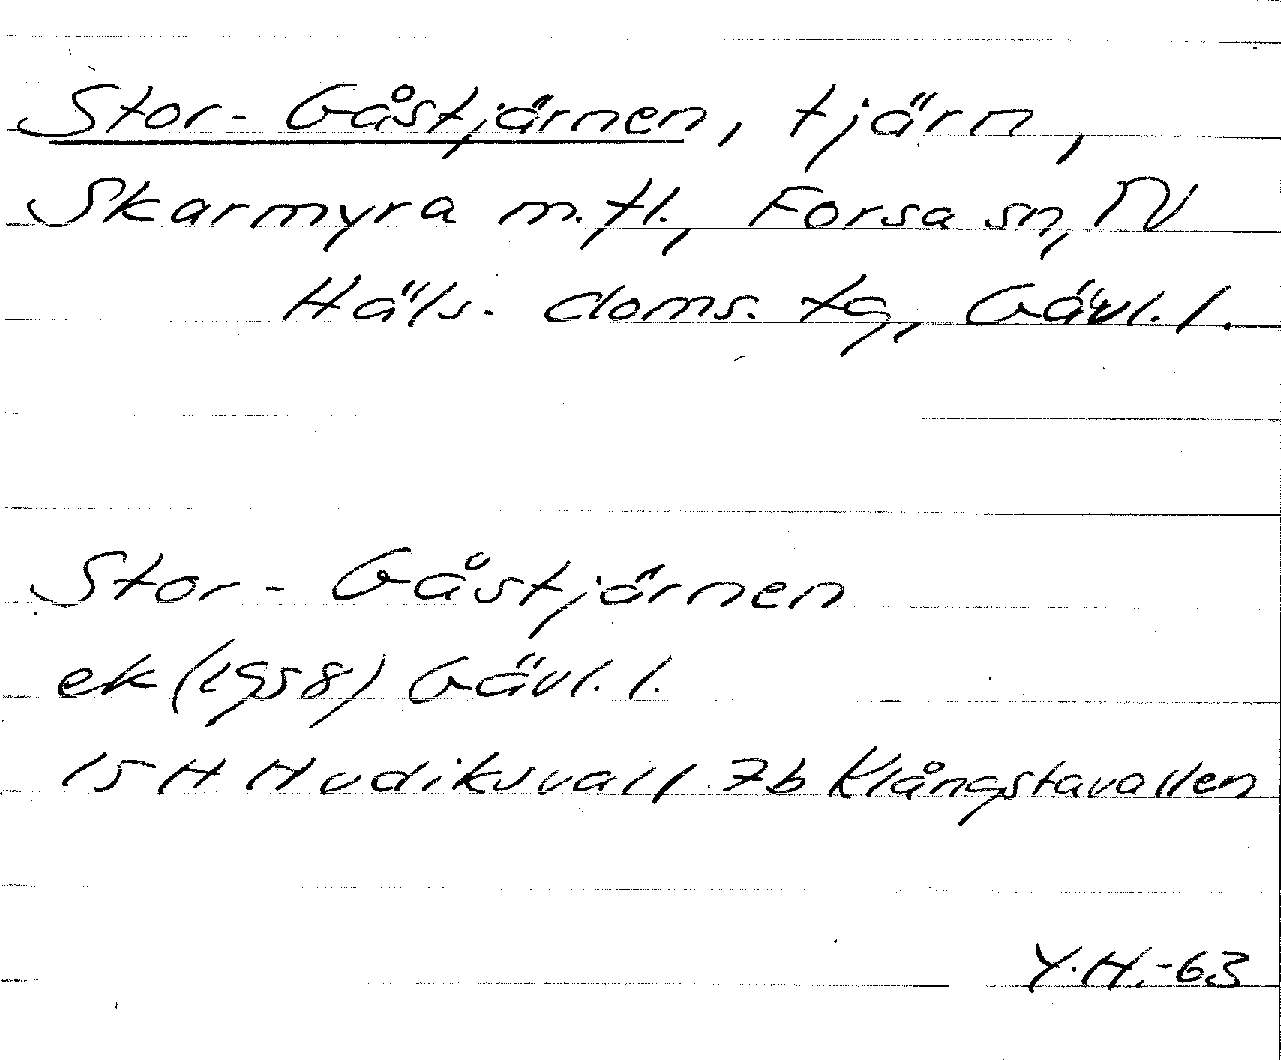 Stor-Gåstjärnen, tjärn,
Skarmyra m.fl., Forsa sn, N
Häls. doms. tg, Gävl. l.
Stor-Gåstjärnen
ek (1958) Gävl. l.
15 H Hudiksvall 7b Klångstavallen
Y.H.-63